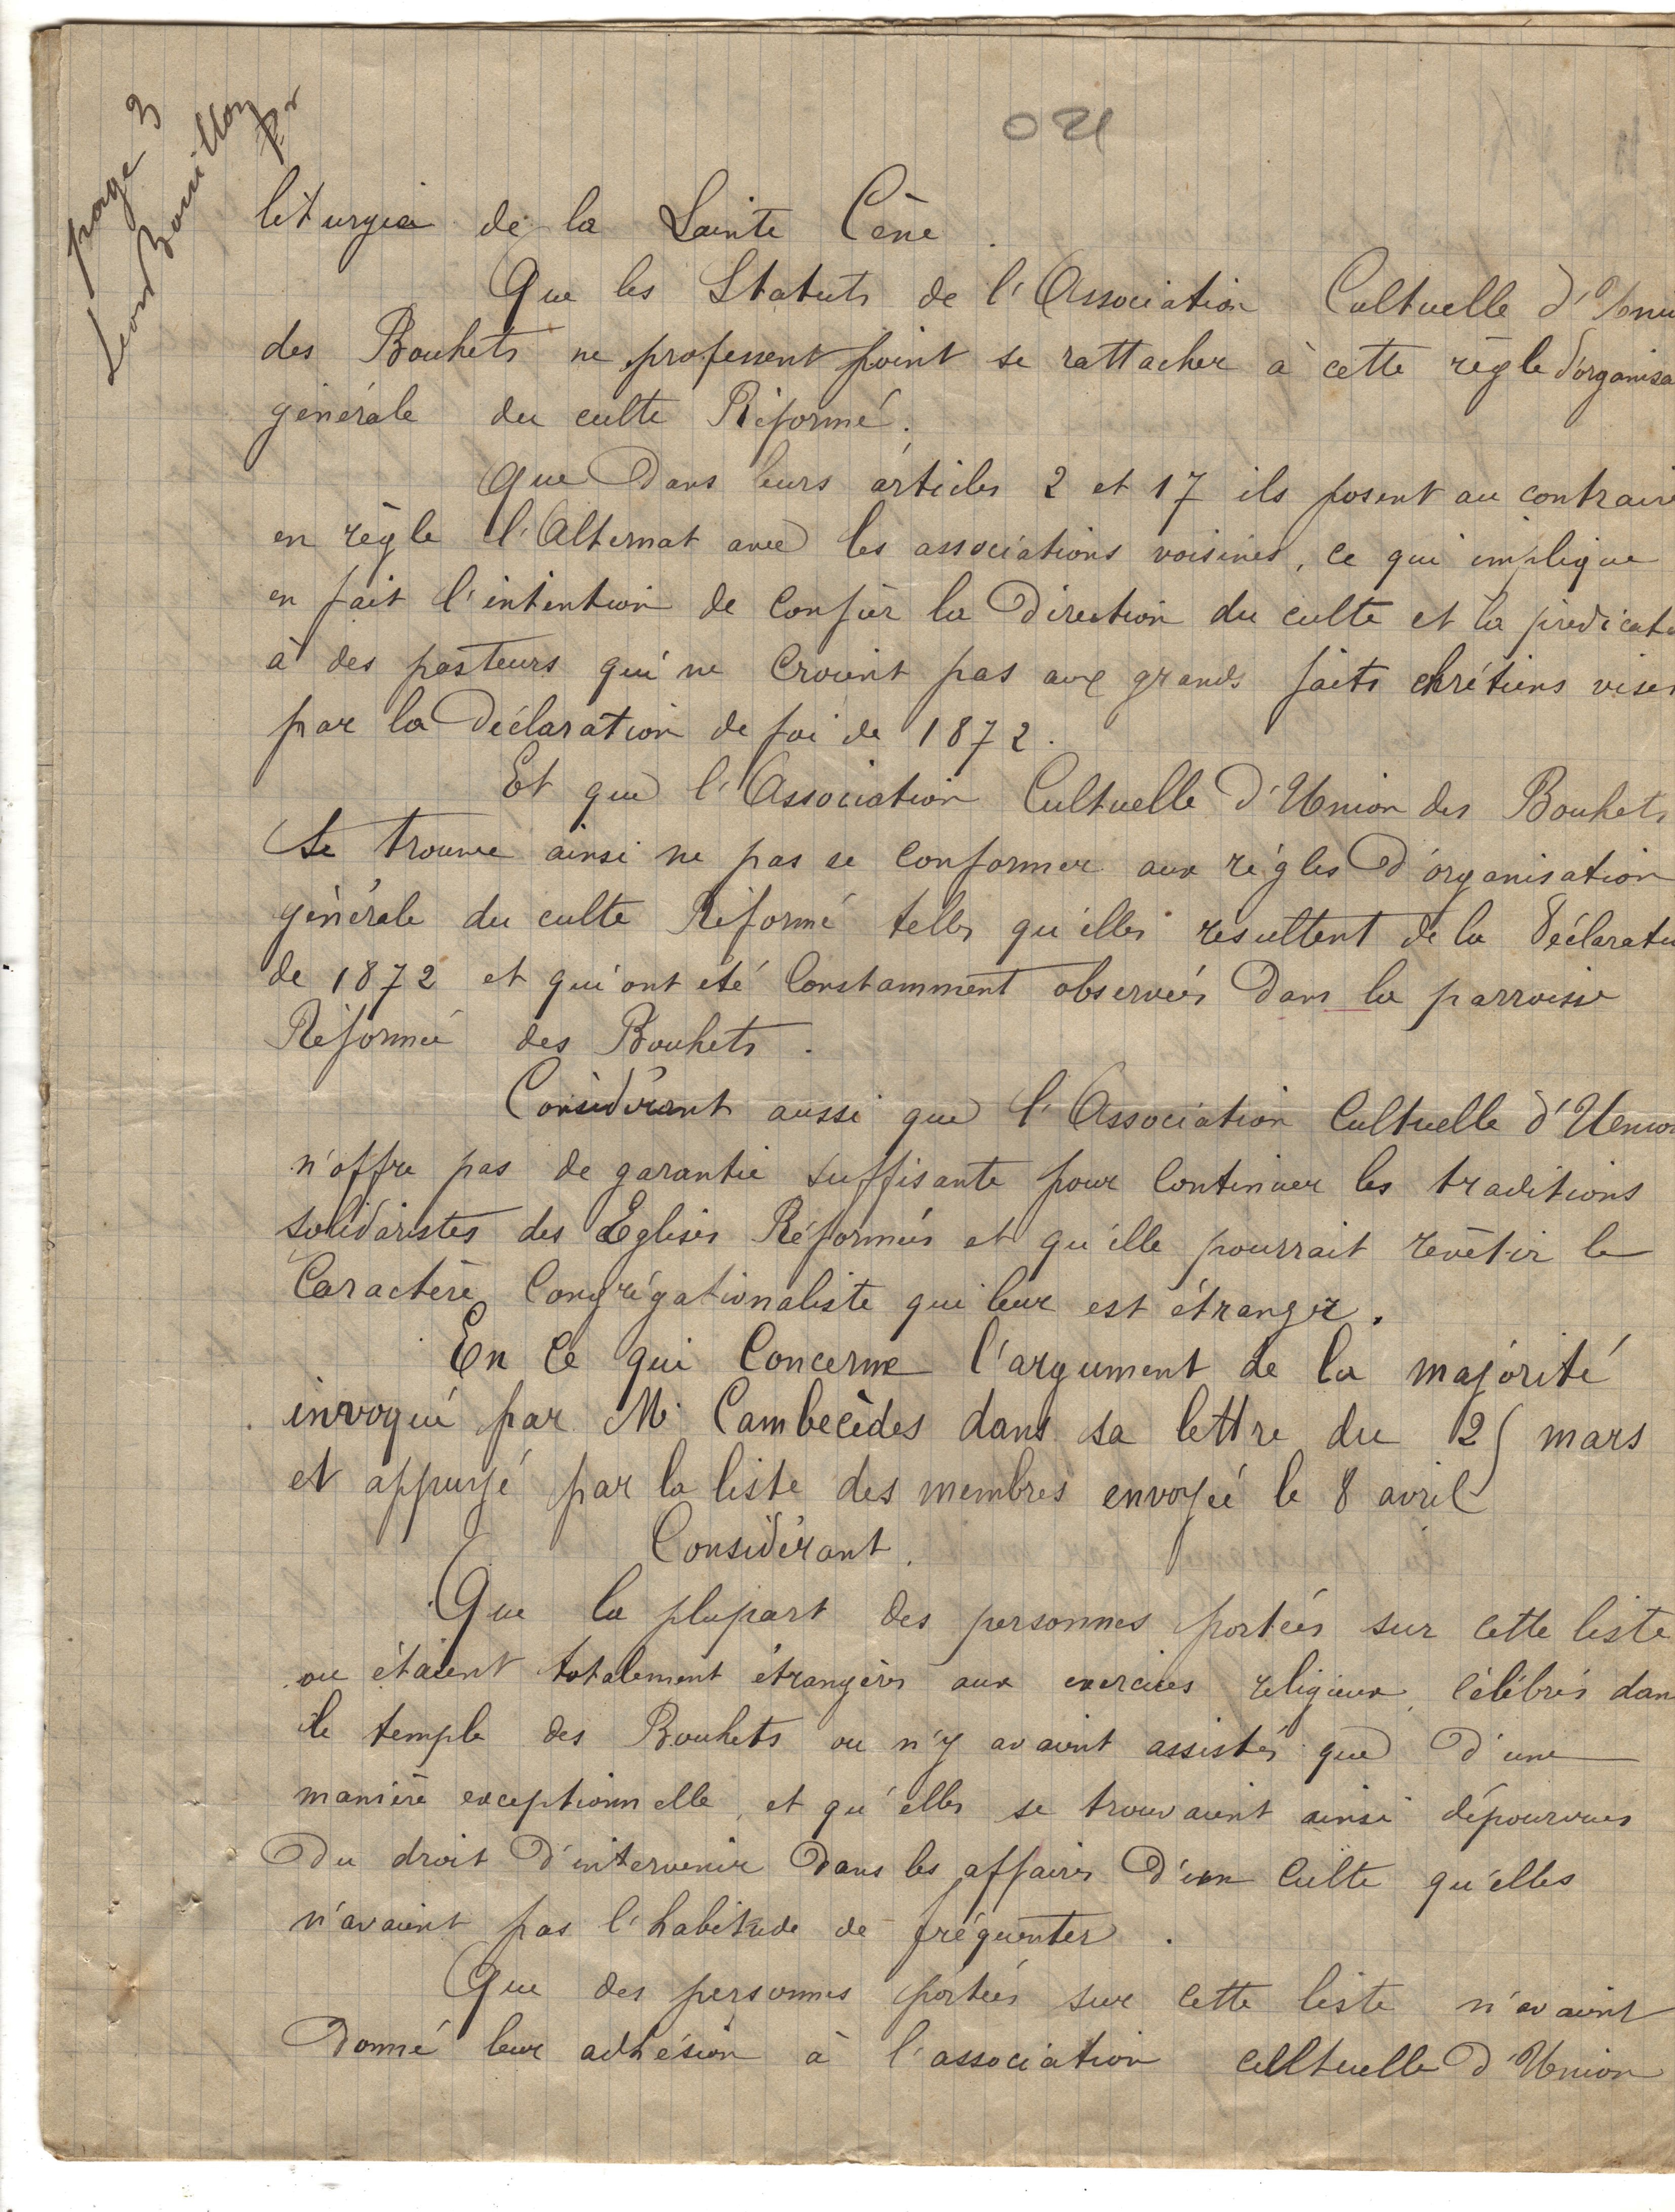 page 3
Leon Bouillon
Pr
021
liturgie de la Sainte Cène.
Que les Statuts de l'Association Cultuelle d'Unio
des Bouhets ne professent point se rattacher à cette règle d'organisa
générale du culte Réformé.
Que Dans leurs articles 2 et 17 ils posent au contraire
en règle l'Alternat avec les associations voisines, ce qui implique
en fait l'intention de confier la Direction du culte et la prédicati
à des pasteurs qui ne croient pas aux grands faits chrétiens visés
par la Déclaration de foi de 1872.
Et que l'Association Cultuelle d'Union des Bouhets
Se trouve ainsi ne pas se conformer aux règles d'organisation
générale du culte Réformé telles qu'elles resultent de la Déclaratio
de 1872 et qui ont été Constamment observées Dans la parroisse
Réformée des Bouhets.
Considérant aussi que l'Association Cultuelle d'Union
n'offre pas de garantie suffisante pour Continuer les traditions
solidaristes des Eglises Réformées et qu'elle pourrait revêtir le
Caractère Congrégationaliste qui leur est étranger.
En Ce qui Concerne l'argument de la majorité
invoqué par M. Cambecèdes dans sa lettre du 25 mars
et appuyé par la liste des membres envoyée le 8 avril
Considérant.
Que la plupart des personnes portées sur cette liste
ou étaient totalement étrangères aux exercices religieux célébrés dan
le temple des Bouhets ou n'y avaient assistés que d'une
manière exceptionnelle, et qu'elles se trouvaient ainsi dépourvues
Du droit D'intervenir Dans les affaires D'un Culte qu'elles
n'avaient pas l'habitude de fréquenter.
Que des personnes portées sur cette liste n'avaient
Donné leur adhésion à l'association cultuelle D'Union